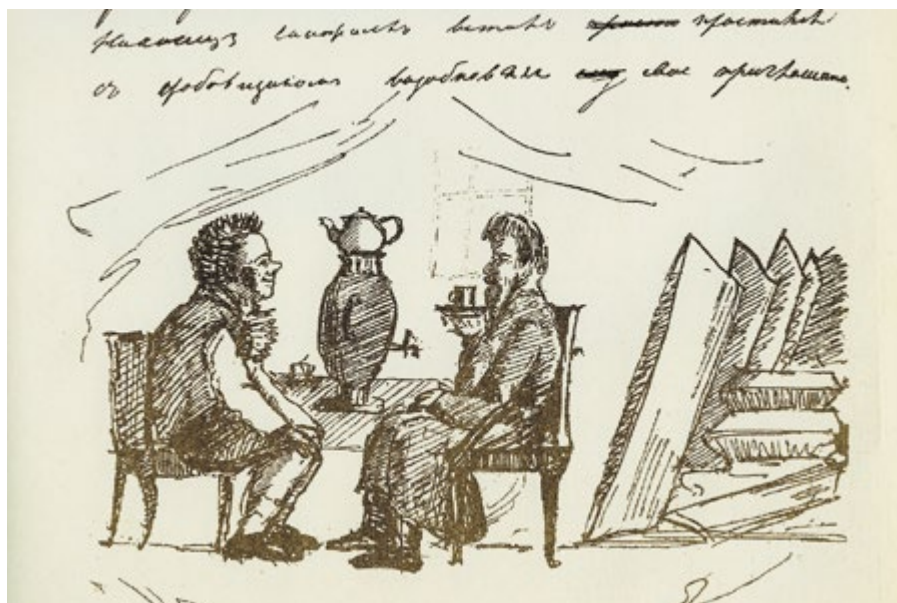 Наконецъ сапожникъ всталъ простился
съ гробовщикомъ возобновляя свое приглашение.